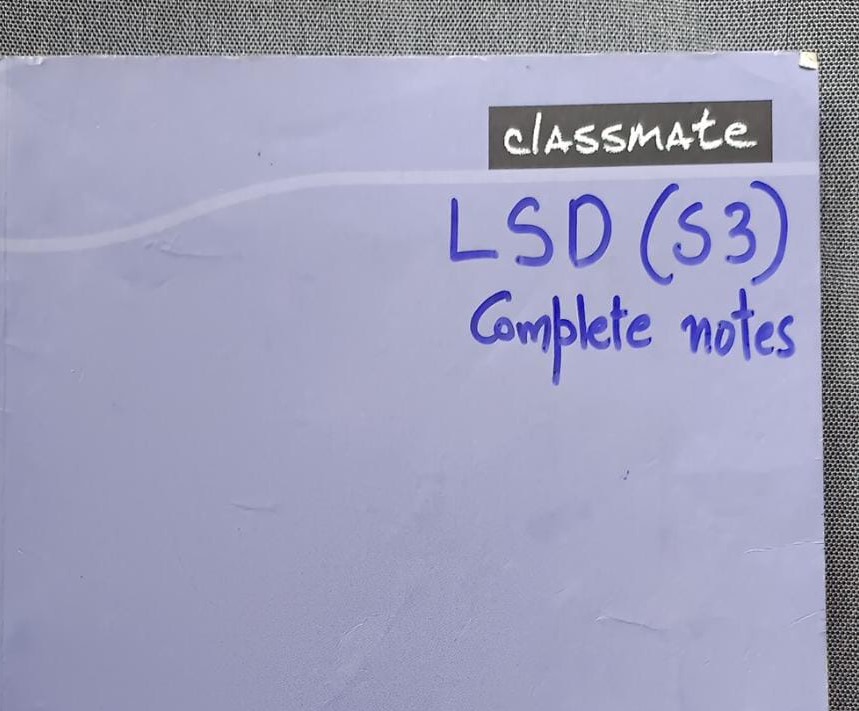 classmate
LSD (S3)
Complete notes